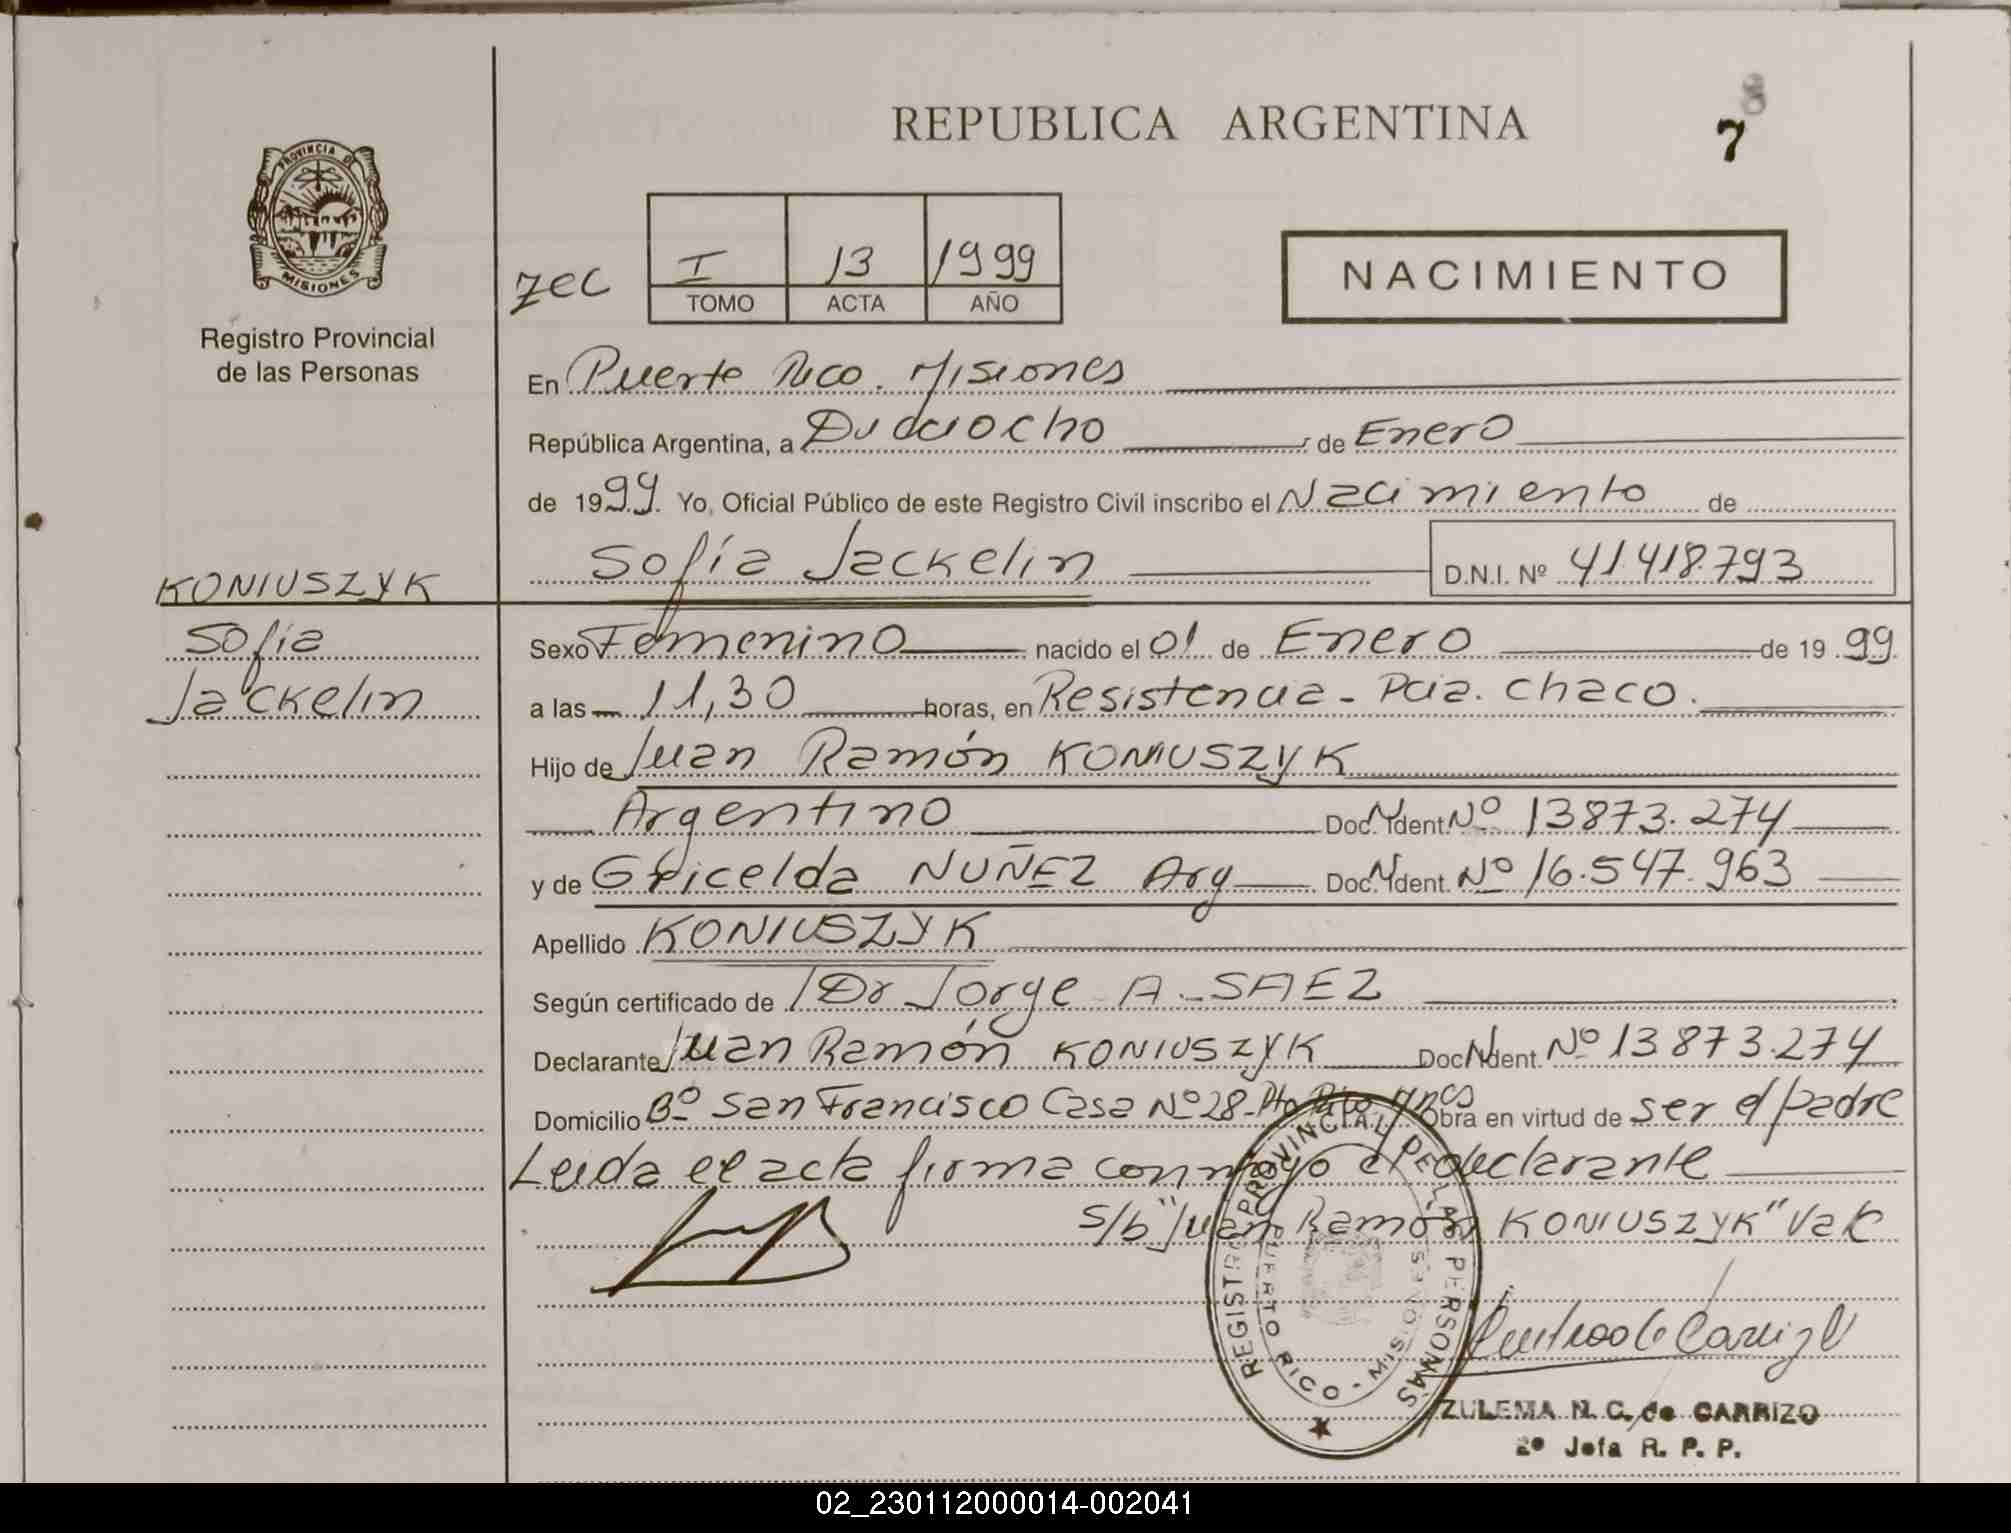 REPUBLICA ARGENTINA
8
7
PROVINCIA DE
MISIONES
Registro Provincial
de las Personas
zec
I 13 1999
TOMO ACTA AÑO
NACIMIENTO
En Puerto Rico. Misiones
República Argentina, a Dieciocho de Enero
de 1999. Yo, Oficial Público de este Registro Civil inscribo el Nacimiento de
Sofía Jackelin D.N.I. Nº 41.418.793
KONIUSZYK
Sofía
Jackelin
Sexo Femenino nacido el 01 de Enero de 1999
a las 11,30 horas, en Resistencia - Pcia. Chaco.
Hijo de Juan Ramón KONIUSZYK
Argentino Doc. Ident. Nº 13873.274
y de Gricelda NUÑEZ Arg Doc. Ident. Nº 16.547.963
Apellido KONIUSZYK
Según certificado de Dr Jorge A. SAEZ
Declarante Juan Ramón KONIUSZYK Doc. Ident. Nº 13873.274
Domicilio Bº San Francisco Casa Nº 28 - Pto Rico Mnes Obra en virtud de ser el padre
Leida el acta firma conmigo el declarante
s/b "Juan Ramón KONIUSZYK" Vale
REGISTRO PROVINCIAL DE LAS PERSONAS
PUERTO RICO - MISIONES
ZULEMA N. C. de CARRIZO
2º Jefa R. P. P.
02_230112000014-002041